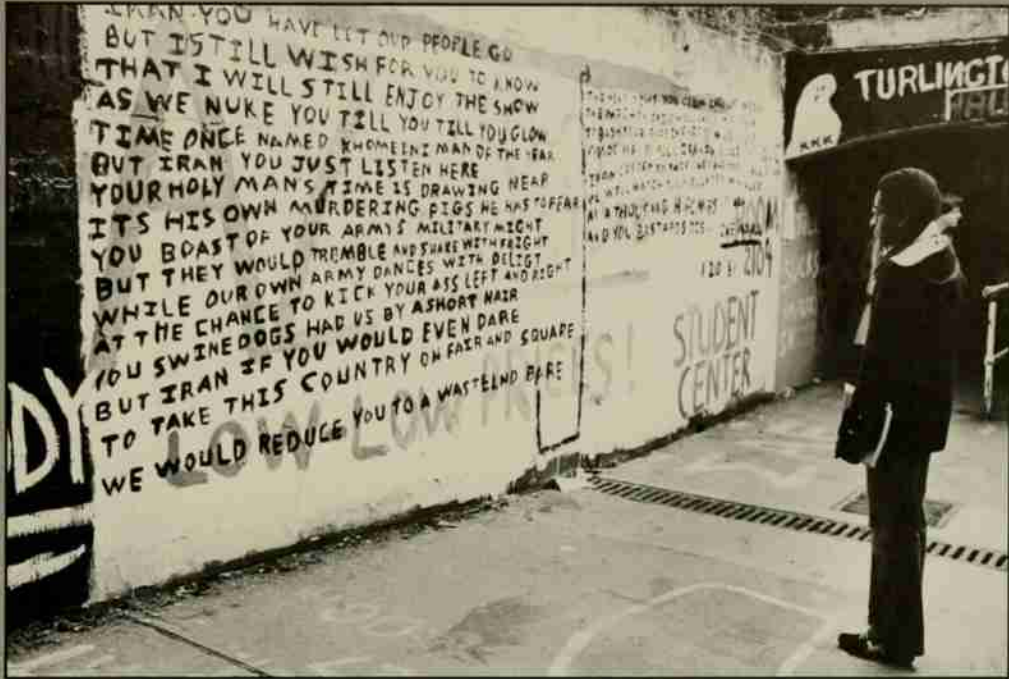 IRAN YOU HAVE LET OUR PEOPLE GO
BUT I STILL WISH FOR YOU TO KNOW
THAT I WILL STILL ENJOY THE SHOW
AS WE NUKE YOU TILL YOU TILL YOU GLOW
TIME ONCE NAMED KHOMEINI MAN OF THE YEAR
BUT IRAN YOU JUST LISTEN HERE
YOUR HOLY MANS TIME IS DRAWING NEAR
ITS HIS OWN MURDERING PIGS HE HAS TO FEAR
YOU BOAST OF YOUR ARMYS MILITARY MIGHT
BUT THEY WOULD TREMBLE AND SHAKE WITH FRIGHT
WHILE OUR OWN ARMY DANCES WITH DELIGT
AT THE CHANCE TO KICK YOUR ASS LEFT AND RIGHT
YOU SWINE DOGS HAD US BY A SHORT HAIR
BUT IRAN IF YOU WOULD EVEN DARE
TO TAKE THIS COUNTRY ON FAIR AND SQUARE
WE WOULD REDUCE YOU TO A WASTELND BARE
LOW LOW PRICES!
DY
AND YOU BASTARDS
2104
STUDENT
CENTER
TURLINGT
HALL
KKK